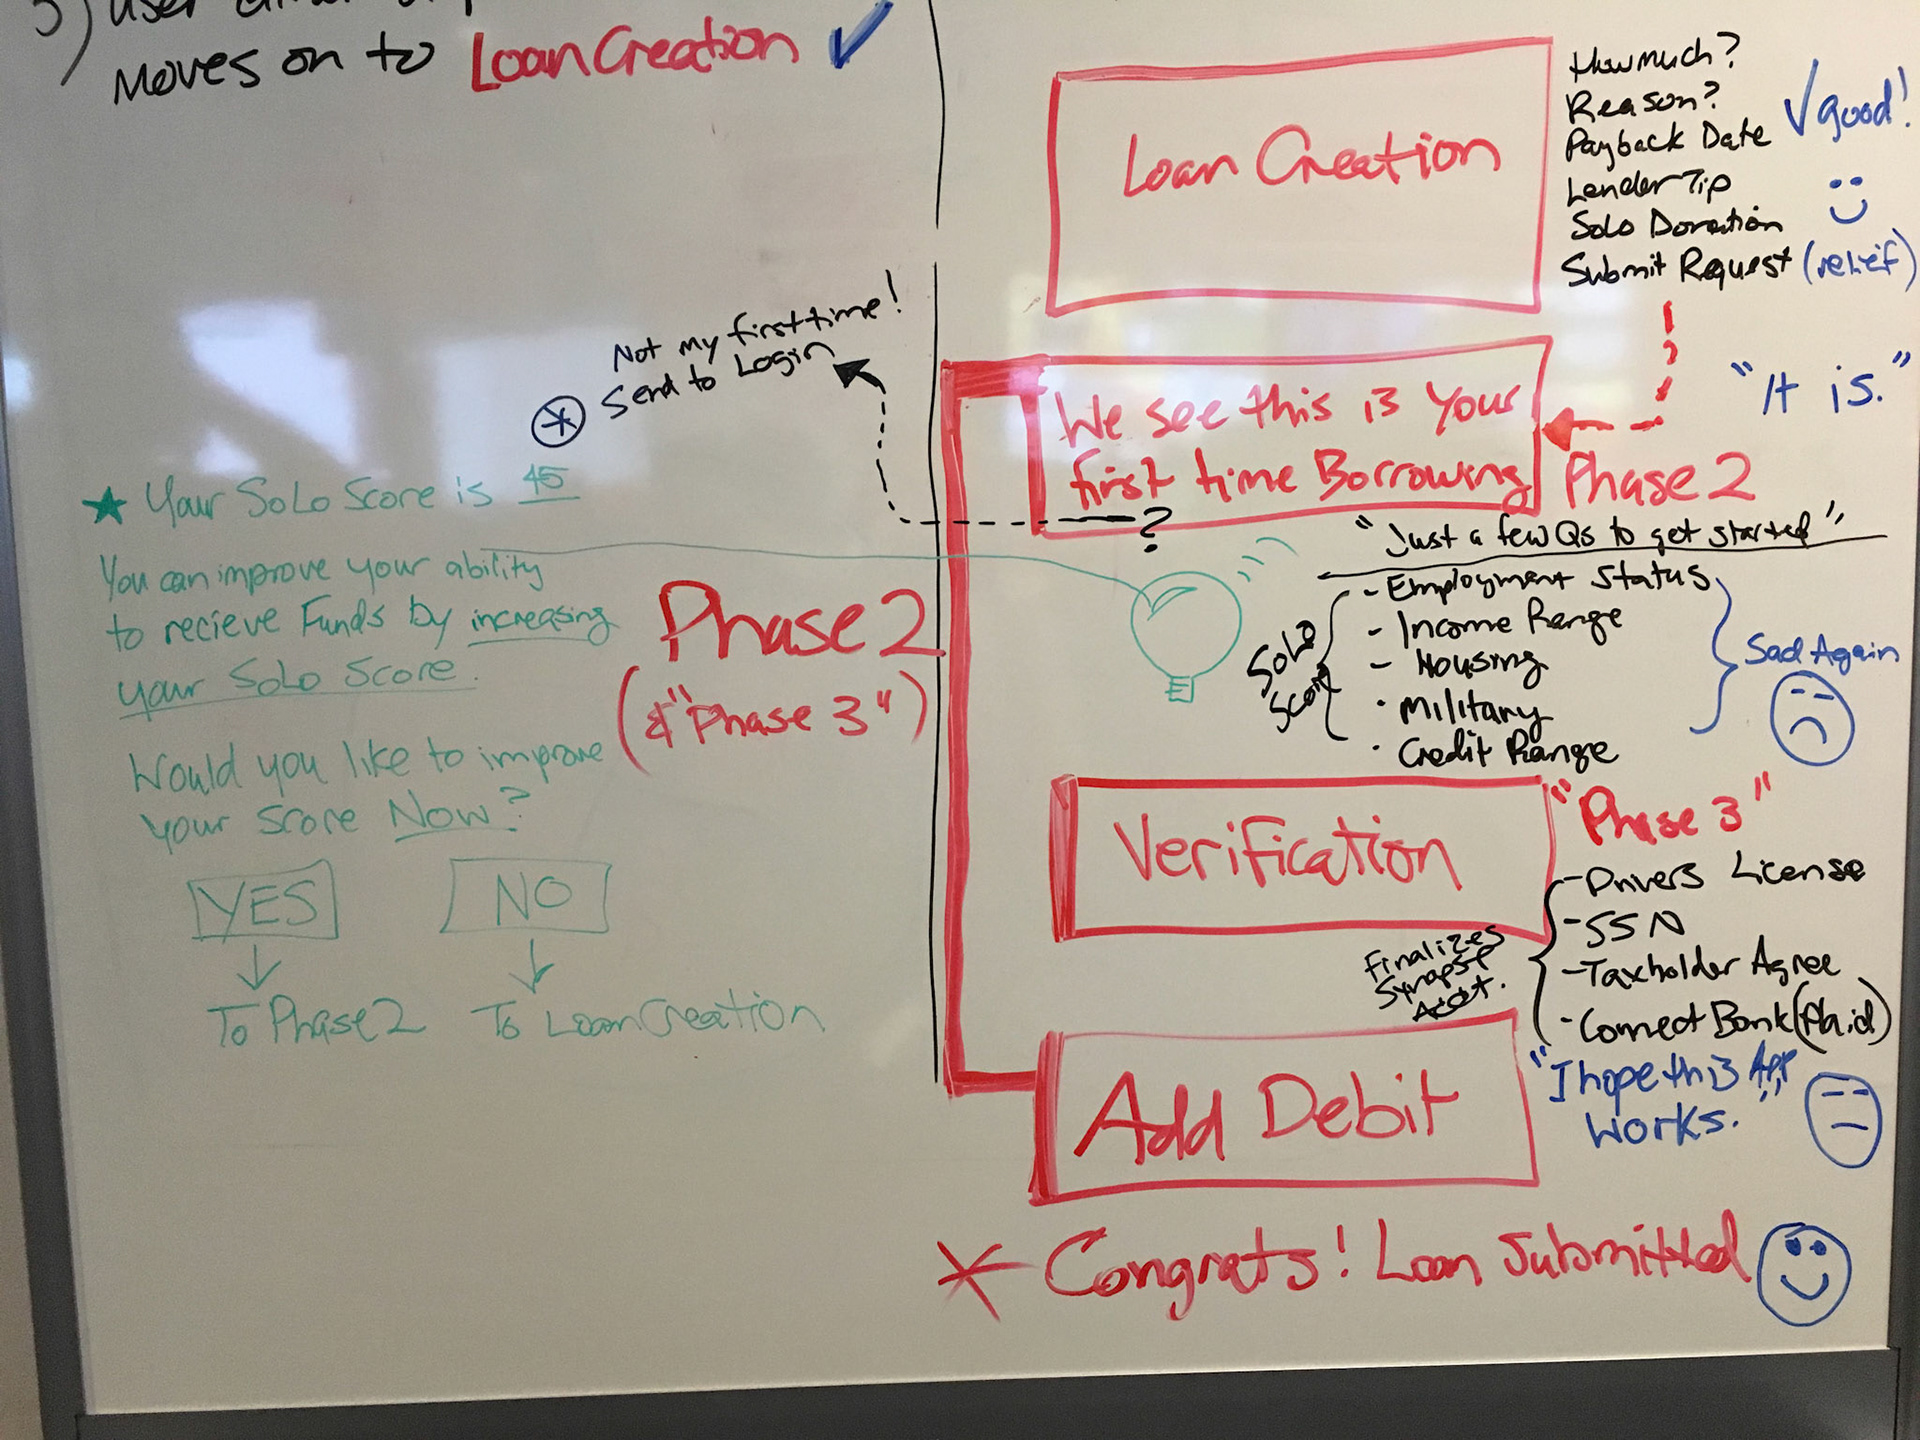 3) User
moves on to Loan Creation ✓
Not my first time!
Send to Login
★ Your SoLo Score is 45
You can improve your ability
to recieve Funds by increasing
your SoLo Score.
Would you like to improve
your score Now?
YES
NO
To Phase 2
To Loan Creation
Phase 2
(&"Phase 3")
Loan Creation
How much?
Reason?
Payback Date
Lender Tip
SoLo Donation
Submit Request (relief)
✓ good!
We see this is Your
first time Borrowing
?
"It is."
Phase 2
"Just a few Qs to get started"
- Employment Status
- Income Range
- Housing
· Military
· Credit Range
SoLo
Score
Sad Again
Verification
"Phase 3"
- Drivers License
- SSN
- Taxholder Agree
- Connect Bank (Plaid)
Finalizes
Synapse
Acct.
Add Debit
"I hope this App
works."
* Congrats! Loan Submitted